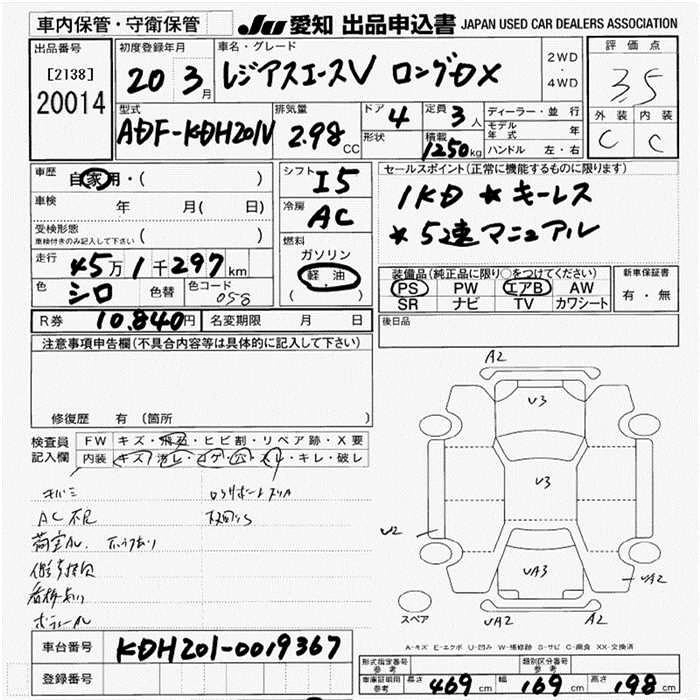 車内保管・守衛保管
JU 愛知 出品申込書 JAPAN USED CAR DEALERS ASSOCIATION
出品番号
[2138]
20014
初度登録年月
20 3月
車名・グレード
レジアスエースV ロングDX
2WD
・
4WD
評価点
3.5
外装 内装
C C
型式
ADF-KDH201V
排気量
2.98 CC
ドア 4
形状
定員 3人
積載 1250kg
ディーラー・並行
モデル年式 年
ハンドル 左・右
車歴
自家用・( )
車検 年 月( 日)
受検形態
車検付きのみ記入して下さい ( )
走行 45万1千297km
色 シロ 色替 色コード 058
シフト I5
冷房 AC
燃料
ガソリン
軽油
( )
セールスポイント(正常に機能するものに限ります)
1KD ★キーレス
★5速マニュアル
装備品(純正品に限り○をつけてください)
PS PW エアB AW
SR ナビ TV カワシート
新車保証書
有・無
R券 10,840円 名変期限 月 日
後日品
注意事項申告欄(不具合内容等は具体的に記入して下さい)
修復歴 有 (箇所
検査員記入欄
FW キズ・飛石・ヒビ割・リペア跡・X要
内装 キズ・汚レ・コゲ・穴・スレ・キレ・破レ
AC不良
A2
U3
U3
U2
UA3
UA2
UA2
A2
スペア
A-キズ E-エクボ U-凹み W-補修跡 S-サビ C-腐食 XX-交換済
車台番号 KDH201-0019367
登録番号
形式指定番号 参考
類別区分番号 参考
車庫証明用 参考 長さ 469cm 幅 169cm 高さ 198cm